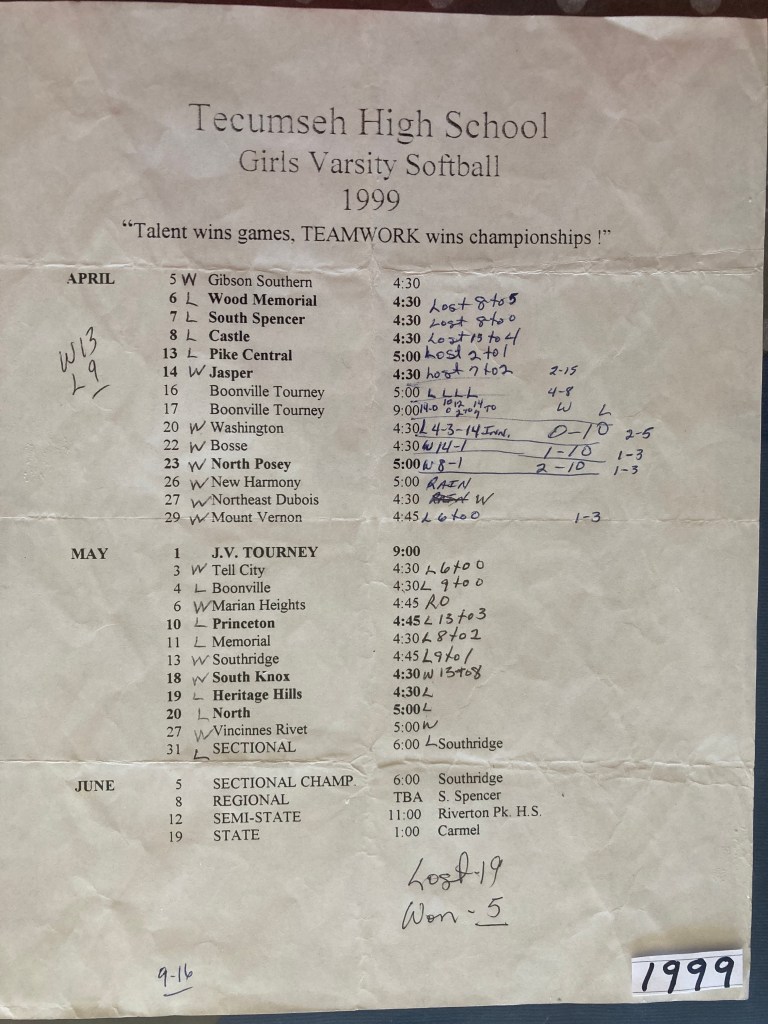 Tecumseh High School
Girls Varsity Softball
1999
“Talent wins games, TEAMWORK wins championships !”
APRIL 5 W Gibson Southern 4:30
6 L Wood Memorial 4:30 Lost 8 to 5
7 L South Spencer 4:30 Lost 8 to 0
8 L Castle 4:30 Lost 13 to 4
13 L Pike Central 5:00 Lost 2 to 1
14 W Jasper 4:30 Lost 7 to 2 2-15
16 Boonville Tourney 5:00 L L L L 4-8
17 Boonville Tourney 9:00 14-0 W L
20 W Washington 4:30 L 4-3-14 INN. 0-10 2-5
22 W Bosse 4:30 W 14-1 1-10 1-3
23 W North Posey 5:00 W 8-1 2-10 1-3
26 W New Harmony 5:00 RAIN
27 W Northeast Dubois 4:30 W
29 W Mount Vernon 4:45 L 6 to 0 1-3
W13
L9
MAY 1 J.V. TOURNEY 9:00
3 W Tell City 4:30 L 6 to 0
4 L Boonville 4:30 L 9 to 0
6 W Marian Heights 4:45 RO
10 L Princeton 4:45 L 13 to 3
11 L Memorial 4:30 L 8 to 2
13 W Southridge 4:45 L 9 to 1
18 W South Knox 4:30 W 13 to 8
19 L Heritage Hills 4:30 L
20 L North 5:00 L
27 W Vincinnes Rivet 5:00 W
31 L SECTIONAL 6:00 L Southridge
JUNE 5 SECTIONAL CHAMP. 6:00 Southridge
8 REGIONAL TBA S. Spencer
12 SEMI-STATE 11:00 Riverton Pk. H.S.
19 STATE 1:00 Carmel
Lost-19
Won-5
9-16
1999